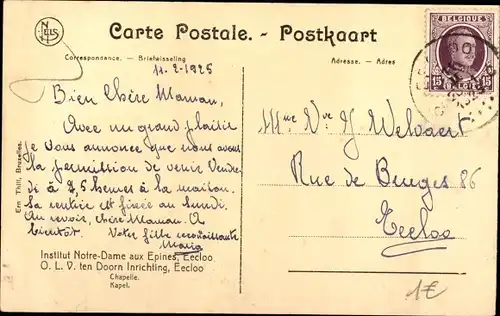 NELS
Carte Postale. - Postkaart
Correspondance. — Briefwisseling
Adresse. — Adres
BELGIQUE
15 15
BELGIË
11.2-1925
Bien Chère Maman,
Avec un grand plaisir
je vous annonce que nous avons
la permission de venir Vendre-
di à 2,5 heures à la maison.
La rentrée est fixée au lundi.
Au revoir, chère Maman. A
bientôt. Votre fille
Maria
Mme Vve J Welvaert
Rue de Bruges 86
Eecloo
Ern. Thill, Bruxelles.
Institut Notre-Dame aux Epines, Eecloo
O. L. V. ten Doorn Inrichting, Eecloo
Chapelle.
Kapel.
1€